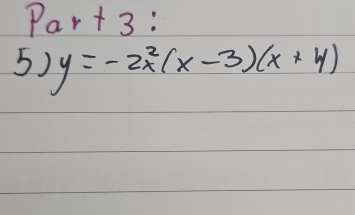 Part 3:
5) y = -2x²(x-3)(x+4)